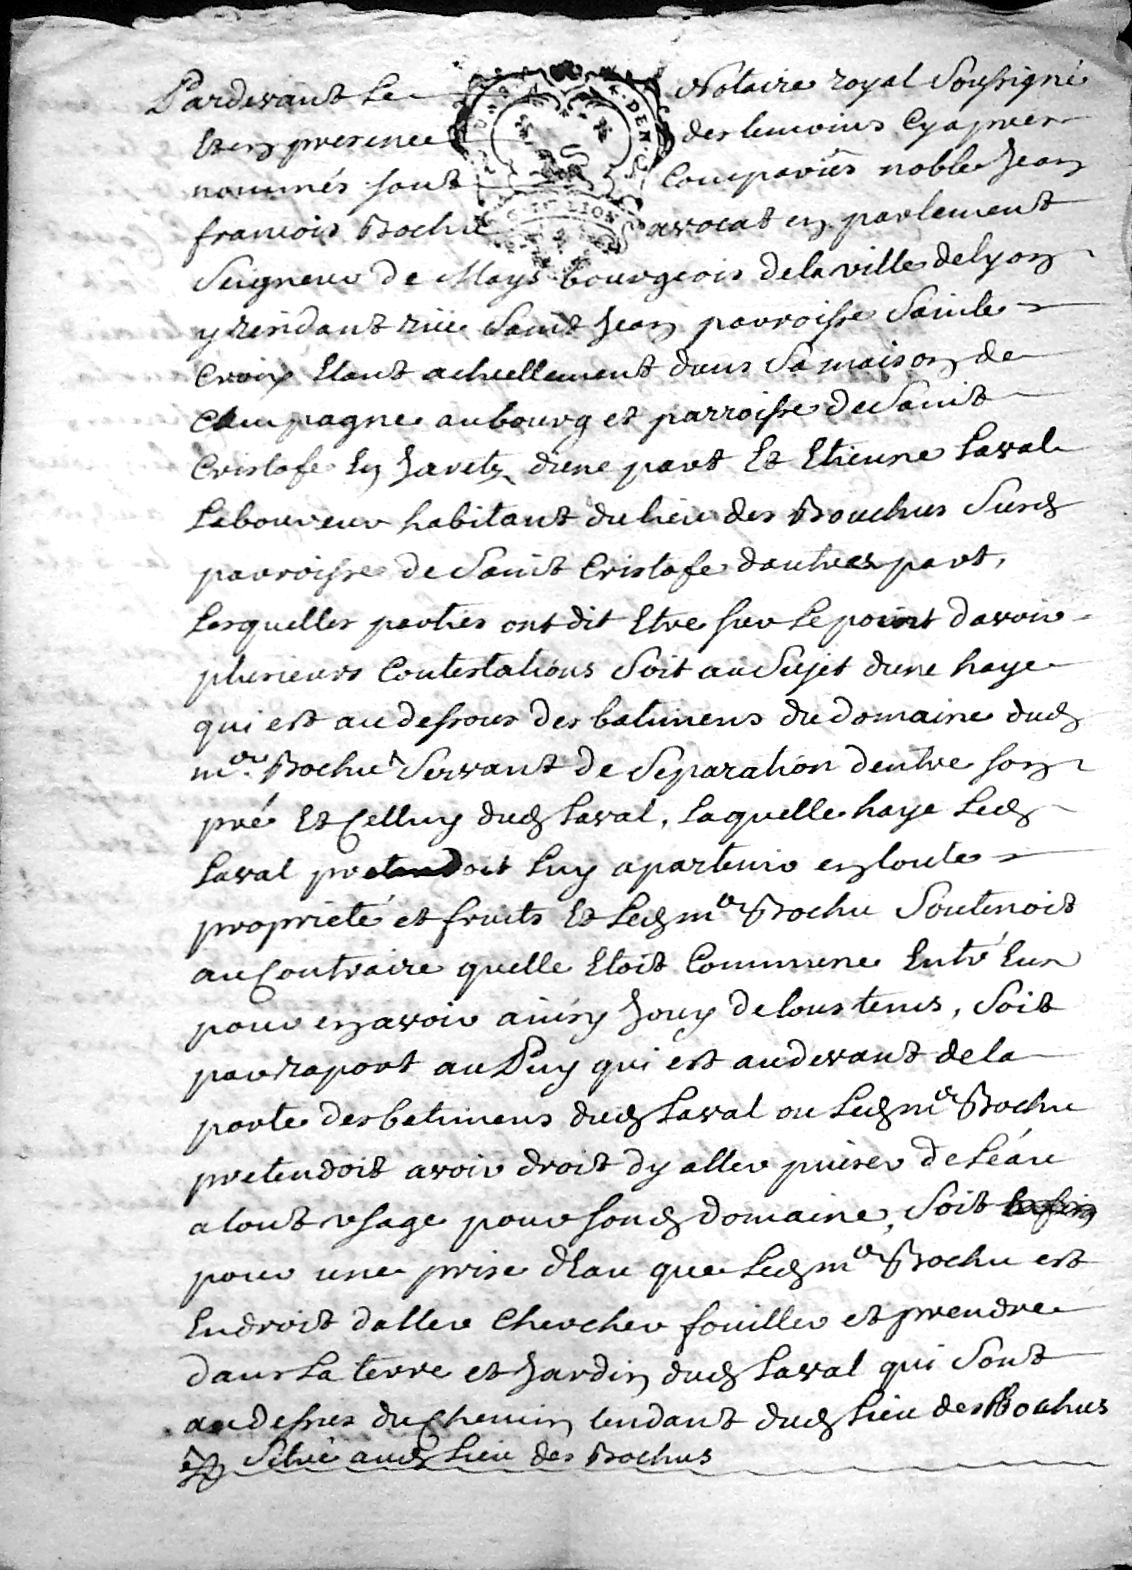 Pardevant Le Notaire royal Soussigné
Et en presence des temoins Cyapres
nommés sont Comparus noble Jean
francois Bochu avocat en parlement
Seigneur de Mays bourgeois de la ville de lyon
y residant rüe Saint Jean parroisse Sainte
Croix Etant actuellement dans Sa maison de
Campagne au bourg et parroisse de Saint
Cristofe En Jaretz dune part Et Etienne Laval
Laboureur habitant du lieu des Bouchus Susd
parroisse de Saint Cristofe dautres part,
Lesquelles parties ont dit Etre sur Le point davoir
plusieurs Contestations Soit au Sujet dune haye
qui est au dessous des batimens du domaine dud
mre Bochu Servant de Separation dentre son
pré Et Celluy dud Laval, Laquelle haye Led
Laval pretendoit Luy apartenir en toute
proprieté et fruits Et Led mre Bochu Soutenoit
au Contraire quelle Etoit Commune Entre Eux
pour en avoir ainsy Jouy de tous tems, Soit
par raport au Puy qui est audevant de la
porte des batimens dud Laval ou Led mre Bochu
pretendoit avoir droit dy aller puiser de Léau
a tout usage pour sond domaine, Soit
pour une prise dEau que Led mre Bochu est
En droit daller Chercher fouiller et prendre
dans La terre et Jardin dud Laval qui Sont
au dessus du Chemin tendant dud Lieu des Bochus
Situé aud Lieu des Bochus